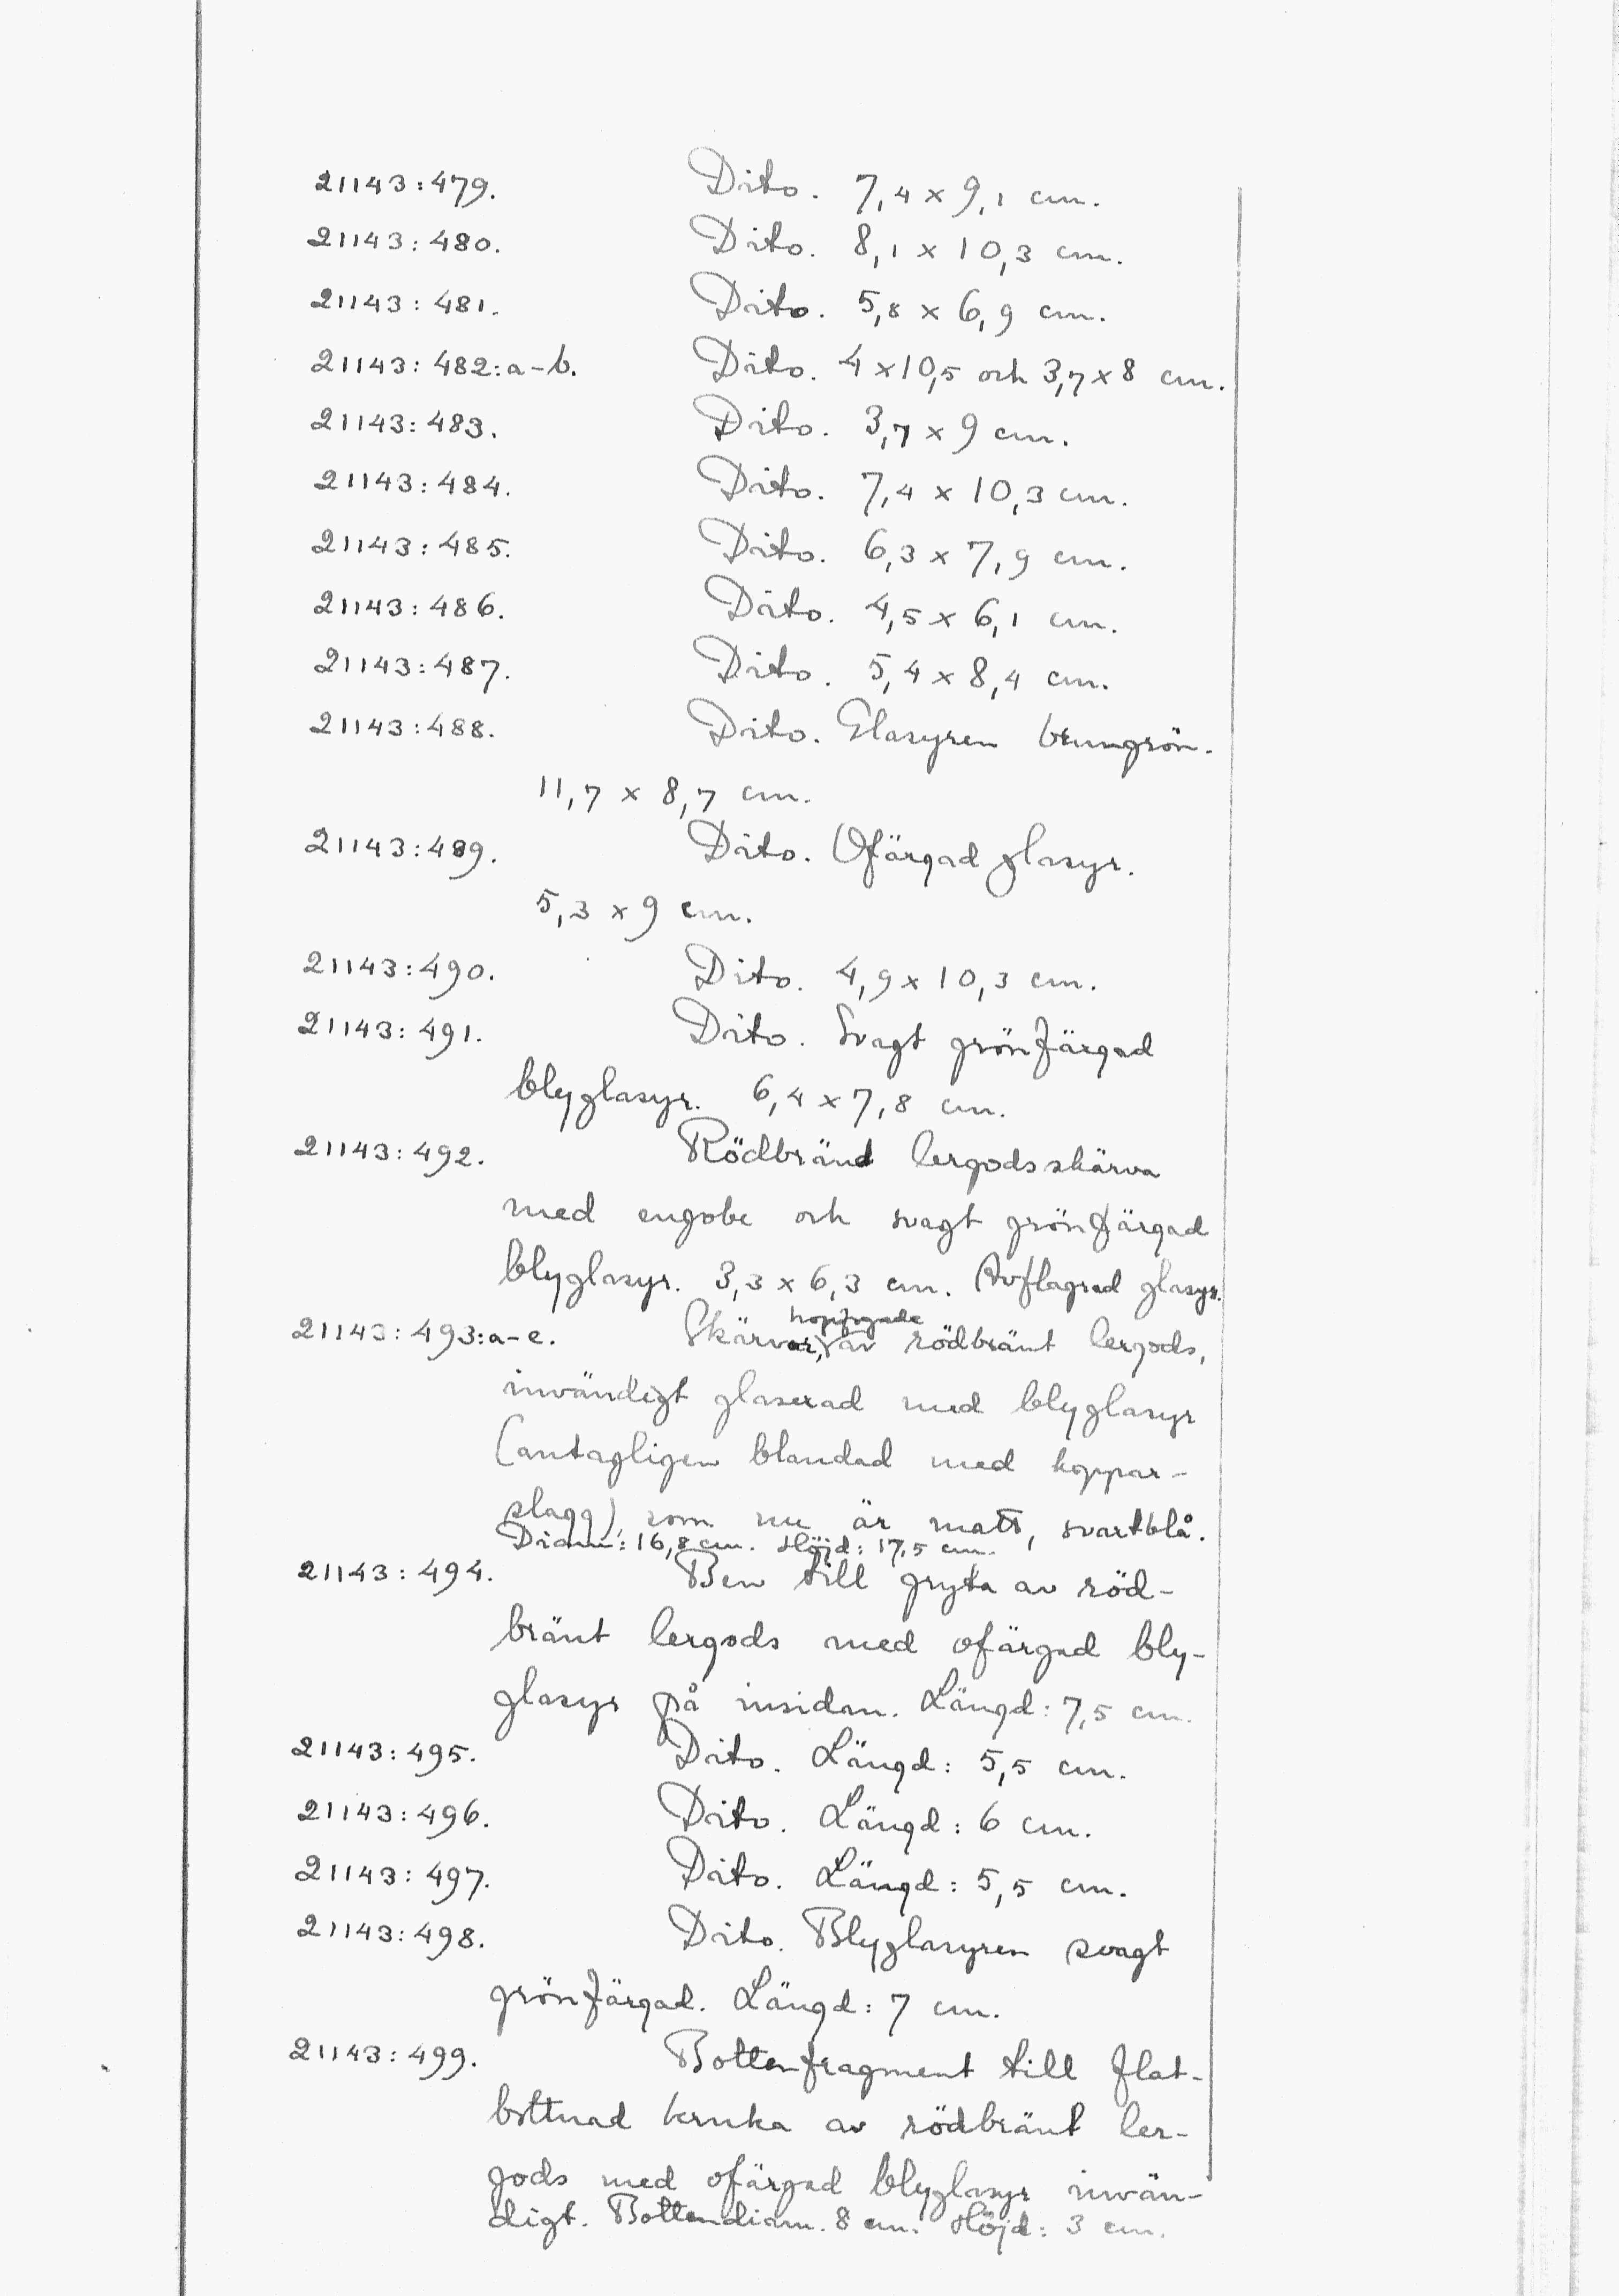 21143:479. Dito. 7,4 x 9,1 cm.
21143:480. Dito. 8,1 x 10,3 cm.
21143:481. Dito. 5,8 x 6,9 cm.
21143:482:a-b. Dito. 4 x 10,5 och 3,7 x 8 cm.
21143:483. Dito. 3,7 x 9 cm.
21143:484. Dito. 7,4 x 10,3 cm.
21143:485. Dito. 6,3 x 7,9 cm.
21143:486. Dito. 4,5 x 6,1 cm.
21143:487. Dito. 5,4 x 8,4 cm.
21143:488. Dito. Glasyren brungrön.
11,7 x 8,7 cm.
21143:489. Dito. Ofärgad glasyr.
5,3 x 9 cm.
21143:490. Dito. 4,9 x 10,3 cm.
21143:491. Dito. Svagt grönfärgad
blyglasyr. 6,4 x 7,8 cm.
21143:492. Rödbränd lergodsskärva
med engobe och svagt grönfärgad
blyglasyr. 3,3 x 6,3 cm. Avflagrad glasyr.
hopfogade
21143:493:a-e. Skärvor, av rödbränt lergods,
invändigt glaserad med blyglasyr
(antagligen blandad med koppar-
slagg), som nu är matt, svartblå.
Diam: 16,8 cm. Höjd: 17,5 cm.
21143:494. Ben till gryta av röd-
bränt lergods med ofärgad bly-
glasyr på insidan. Längd: 7,5 cm.
21143:495. Dito. Längd: 5,5 cm.
21143:496. Dito. Längd: 6 cm.
21143:497. Dito. Längd: 5,5 cm.
21143:498. Dito. Blyglasyren svagt
grönfärgad. Längd: 7 cm.
21143:499. Bottenfragment till flat-
bottnad kruka av rödbränt ler-
gods med ofärgad blyglasyr invän-
digt. Bottendiam. 8 cm. Höjd: 3 cm.